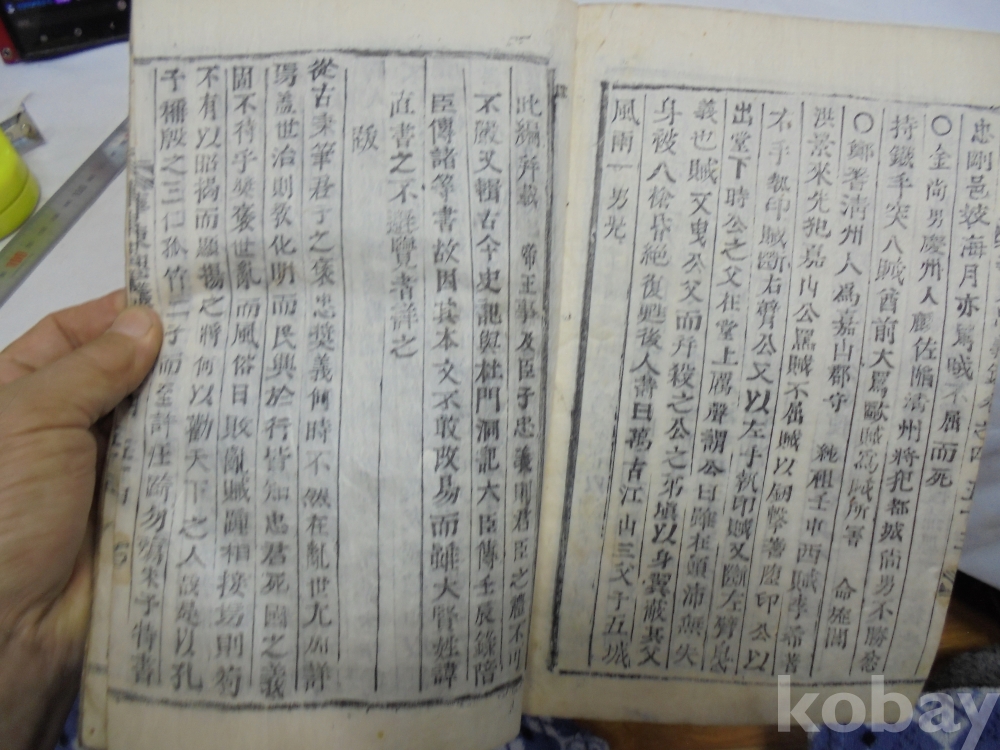 忠剛邑裴海月亦罵賊不屈而死
〇金尙男慶州人麗佐陷淸州將犯都城尙男不勝忿
持鐵手突入賊酋前大罵歐賊爲賊所害 命旌閭
〇鄭蓍淸州人爲嘉山郡守 純祖壬申西賊李希著
洪景來先犯嘉山公罵賊不屈賊以劒擊蓍墮印公以
右手執印賊斷右臂公又以左手執印賊又斷左臂曳公
出堂下時公之父在堂上厲聲謂公曰雖在顚沛無失
義也賊又曳公父而幷殺之公之弟塡以身翼蔽其父
身被八槍昏絶復甦後人書曰萬古江山三父子五城
風雨一男兒
此編幷載 帝王事及臣子忠義則君臣之禮不可
不嚴又輯古今史記與杜門洞記六臣傳壬辰錄陪
臣傳諸等書故因其本文不敢改易而雖大賢姓諱
直書之不避覽者詳之
跋
從古秉筆君子之褒忠奬義何時不然在亂世尤加詳
焉盖世治則敎化明而民興於行皆知忠君死國之義
固不待乎奬褒世亂而風俗日敗亂賊踵相接焉則苟
不有以昭揭而顯揚之將何以勸天下之人哉是以孔
子稱殷之三仁孤竹二子而至許汪踦勿殤朱子特書
kobay